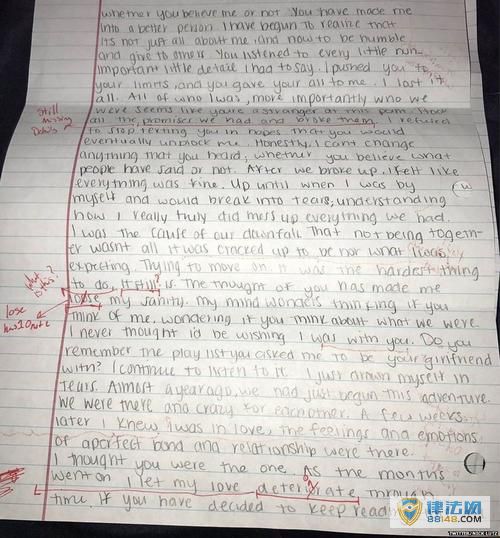 whether you believe me or not. You have made me
into a better person. I have begun to realize that
its not just all about me, and now to be humble
and give to others. You listened to every little non-
important little detail I had to say. I pushed you to
your limits, and you gave your all to me. I lost it
all. All of who I was, more importantly who we
were seems like youre a stranger at this point. I took
all the promises we had and broke them. I refused
to stop texting you in hopes that you would
eventually unblock me. Honestly, I cant change
anything that you heard, whether you believe what
people have said or not. After we broke up, I felt like
everything was fine. Up until when I was by
myself and would break into tears, understanding
how I really truly did mess up everything we had.
I was the cause of our downfall. That not being togeth-
er wasnt all it was cracked up to be nor what I was
expecting. Trying to move on it was the hardest thing
to do, it still is. The thought of you has made me
loose my sanity. My mind wonders thinking if you
think of me, wondering if you think about what we were.
I never thought id be wishing I was with you. Do you
remember the playlist you asked me to be your girlfriend
with? I continue to listen to it. I just drown myself in
tears. Almost a year ago, we had just begun this adventure.
We were there and crazy for eachother. A few weeks
later I knew I was in love, the feelings and emotions
of a perfect bond and relationship were there.
I thought you were the one. As the months
went on I let my love deteriorate through
time. If you have decided to keep reading
Still
missing
Details
What
is this?
lose
has 1 O not 2
律法网
88148.com